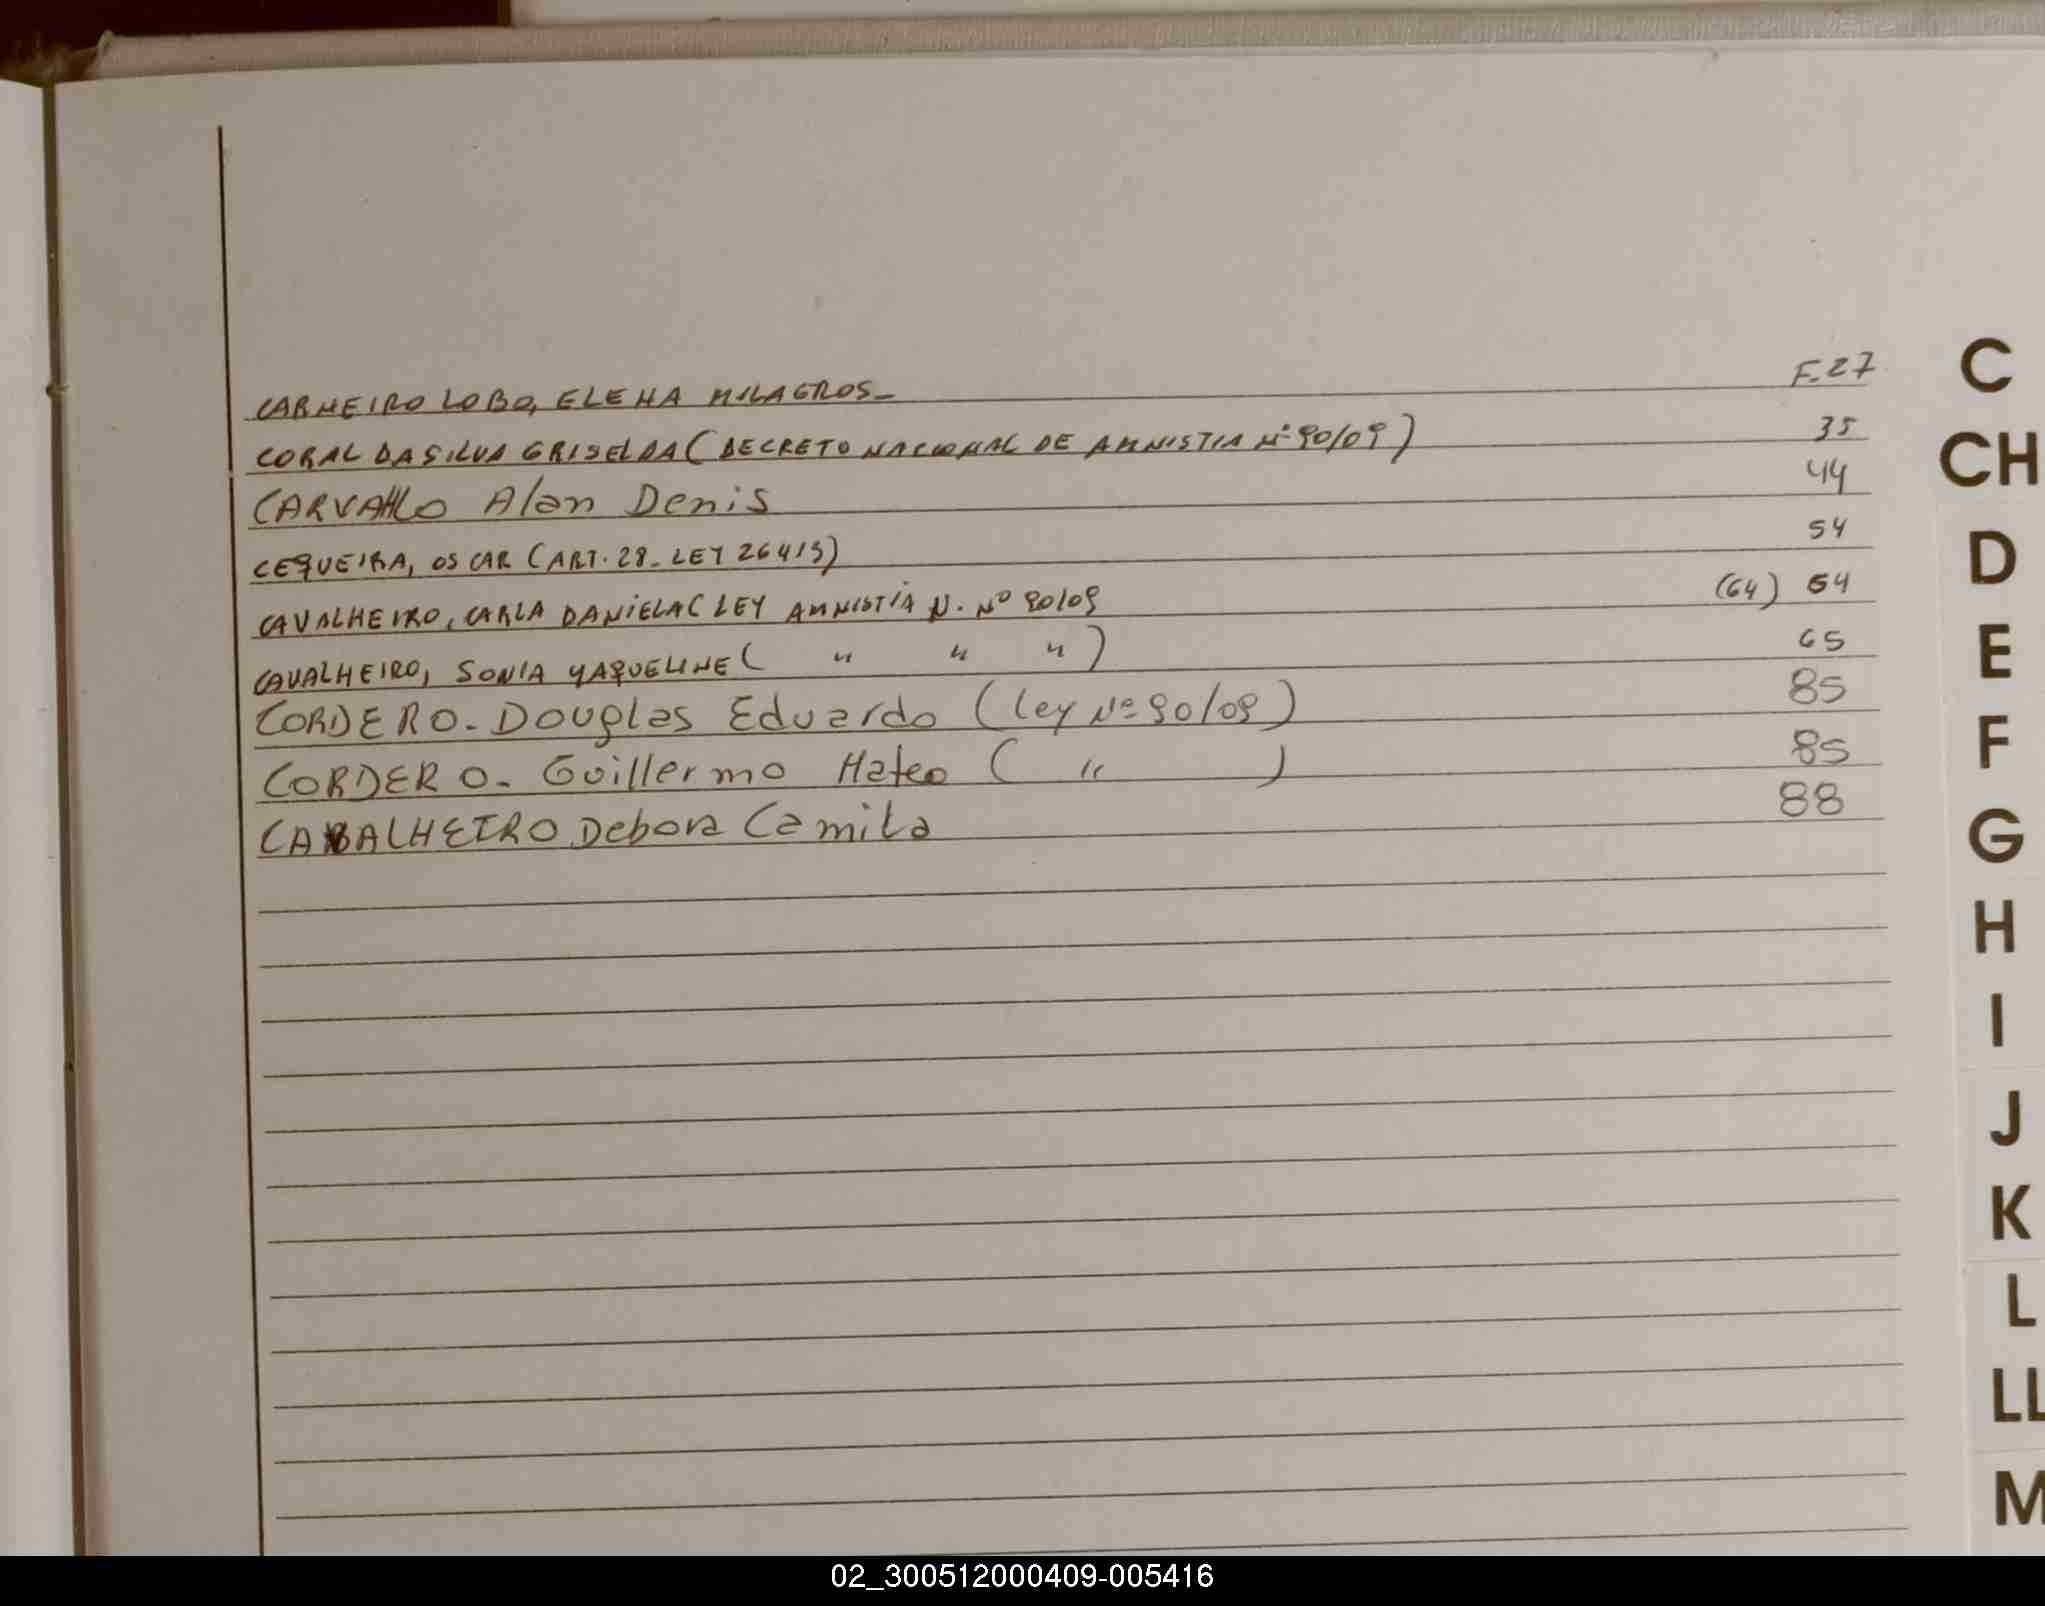 CARNEIRO LOBO, ELENA MILAGROS- F-27
CORAL DA SILVA GRISELDA (DECRETO NACIONAL DE AMNISTIA Nº 90/09) 35
CARVAHLO Alan Denis 44
CEQUEIRA, OSCAR (ART. 28- LEY 26413) 54
CAVALHEIRO, CARLA DANIELA (LEY AMNISTÍA N. Nº 90/09 (64) 64
CAVALHEIRO, SONIA YAQUELINE ( " " " ) 65
CORDERO- Douglas Eduardo (Ley Nº 90/09) 85
CORDERO- Guillermo Mateo ( " ) 85
CABALHEIRO Debora Camila 88
C
CH
D
E
F
G
H
I
J
K
L
LL
M
02_300512000409-005416